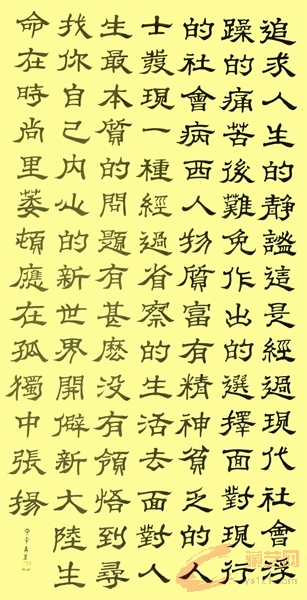 追求人生的静謐這是經過現代社會浮
躁的痛苦後難免作出的選擇面對現行
的社會病西人物質富有精神貧乏的人
士發現一種經過省察的生活去面對人
生最本質的問題有甚麽没有領悟到尋
找你自己内心的新世界開僻新大陸生
命在時尚里萎頓應在孤獨中張揚